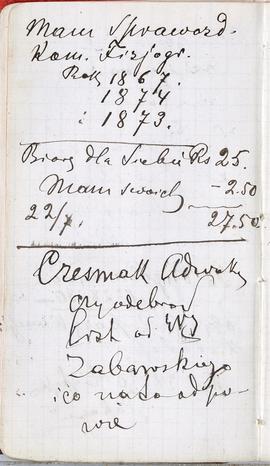 Mam Sprawozd.
Kom. Fizjogr.
Rok 1867.
1874
i 1873.
Biorę dla Siebie Rs 25.
Mam swoich – 2.50
22/7. 27.50
Czesmak Adwokat
czy odebrał
list od
Zabawskiego
i co na to odpo-
wie